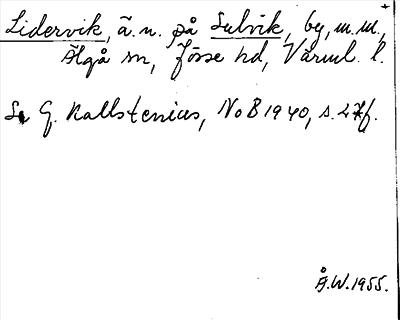 Lidervik, ä. n. på Sulvik, by, m. m.,
Älgå sn, Jösse hd, Värml. l.
Se G. Kallstenius, NoB 1940, s. 27f.
Å.W. 1955.